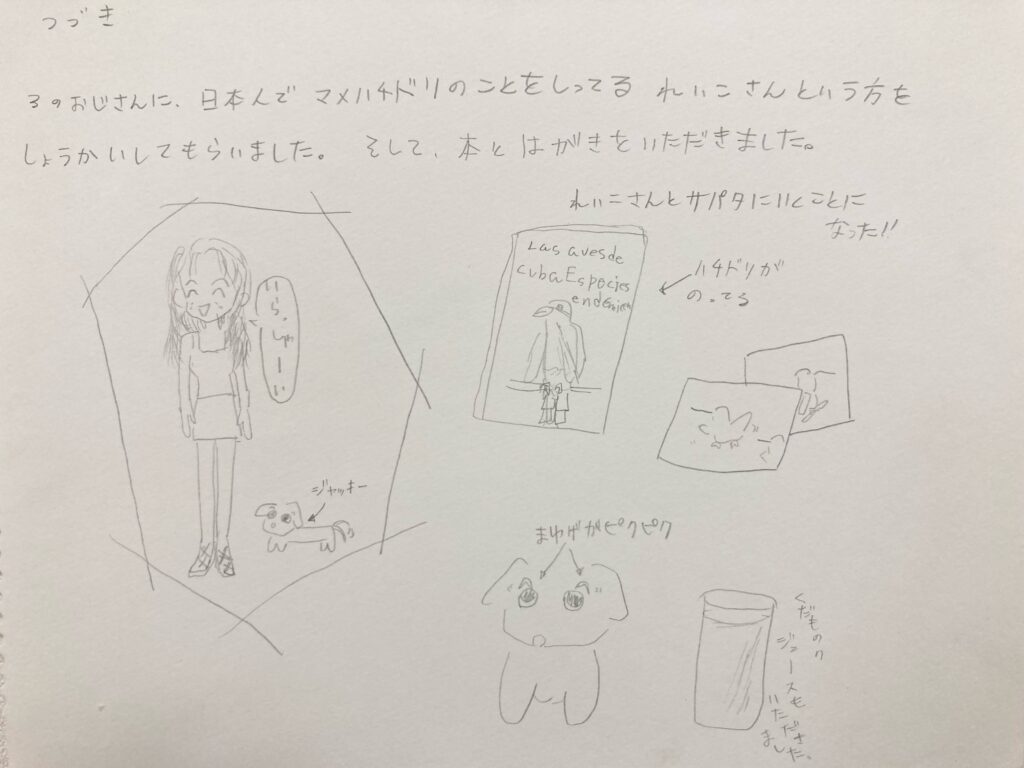 つづき
3のおじさんに、日本人で マメハチドリのことをしってる れいこさんという方を
しょうかいしてもらいました。 そして、本とはがきをいただきました。
れいこさんとサパタにいくことに
なった!!
Las aves de
cuba Espocies
endémicas
ハチドリが
のってる
いらっしゃーい
ジャッキー
まゆげがピクピク
くだものの
ジュースも
いただきました。